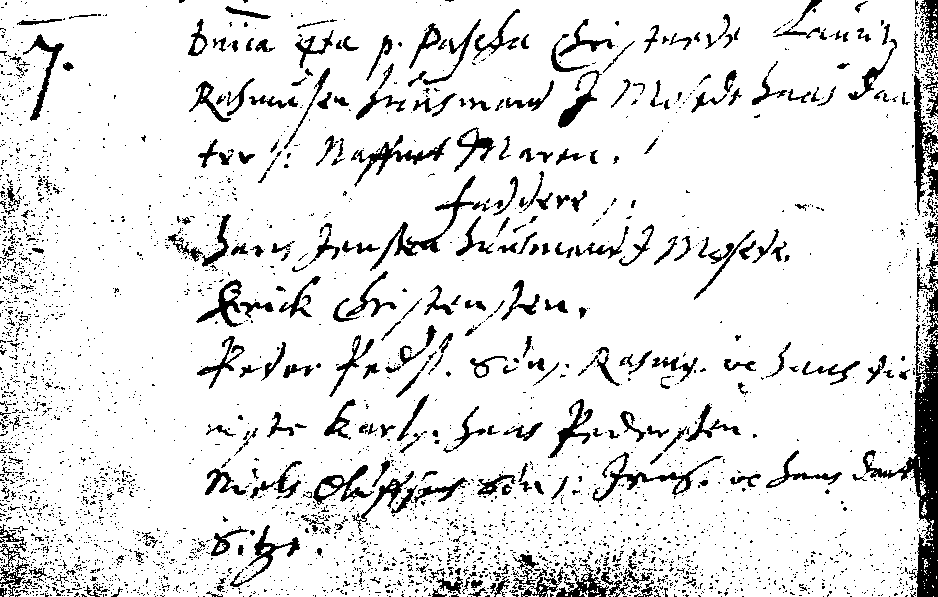 7.
Dnica qta p. Pascha Christnede Lauritz
Rasmußen huusmand I Mosede hans daa
ter /: Naffnet Maren.
faddere /:
hans Jensten huusmand I Mosede.
Erick Christensten.
Peder Peds. Søn /: Rasmg. oc hans tie
niste karl /: hans Pedersten.
Niels Oluffsens Søn /: Jens. oc hans daat
Sitze.